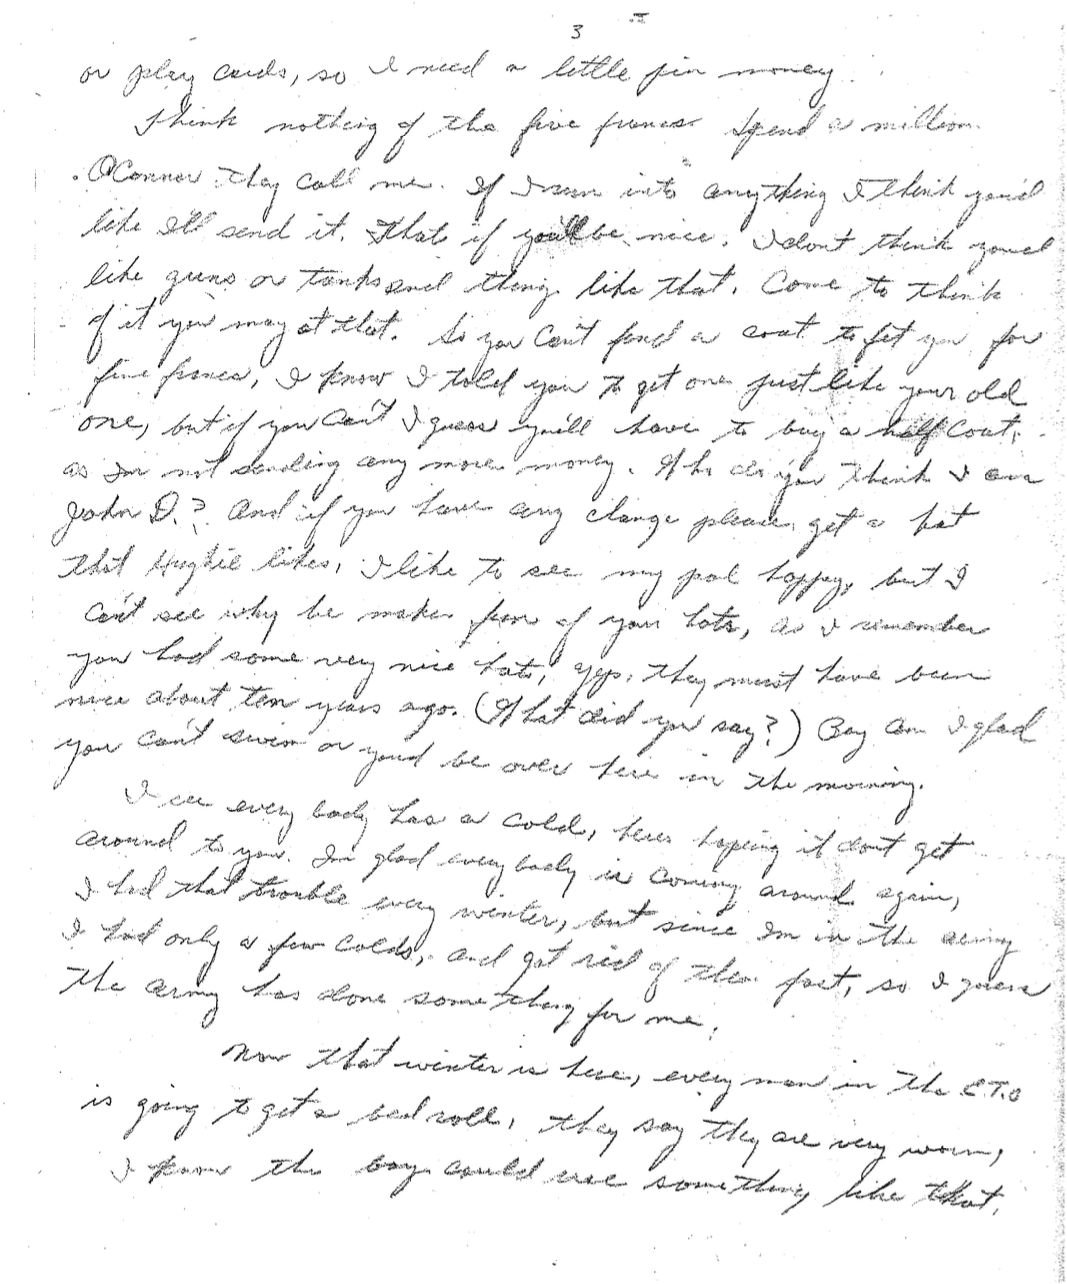 3
or play cards, so I need a little pin money.
Think nothing of the five francs. Spend a million
O'Connor they call me. If I run into anything I think you'd
like I'll send it. Thats if you'll be nice. I dont think you'd
like guns or tanks and things like that. Come to think
of it you may at that. So you can't find a coat to fit you for
five francs, I know I told you to get one just like your old
one, but if you can't I guess you'll have to buy a half coat,
as Im not sending any more money. Who do you think I am
John D.? And if you have any change please get a hat
that Hughie likes, I like to see my pal happy, but I
can't see why he makes fun of your hats, as I remember
you had some very nice hats, yep, they must have been
nice about ten years ago. (What did you say?) Boy am I glad
you can't swim or you'd be over here in the morning.
I see every body has a cold, heres hoping it dont get
around to you. Im glad every body is coming around again,
I had that trouble every winter, but since Im in the army
I had only a few colds, and got rid of them fast, so I guess
the army has done something for me.
Now that winter is here, every man in the E.T.O
is going to get a bed roll, they say they are very warm,
I know the boys could use something like that.